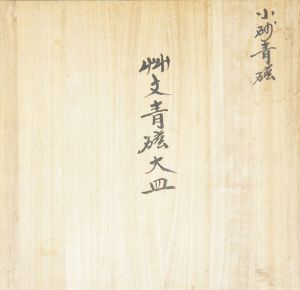 小砂青磁
艸文青磁大皿